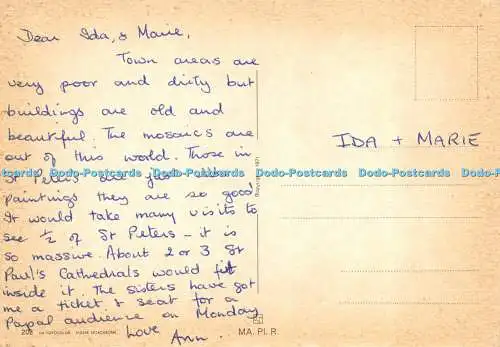 Dear Ida, & Marie,
Town areas are
very poor and dirty but
buildings are old and
beautiful. The mosaics are
out of this world. Those in
St Peters are just like
paintings they are so good
It would take many visits to
see ½ of St Peters - it is
so massive. About 2 or 3 St
Paul's Cathedrals would fit
inside it. The sisters have got
me a ticket & seat for a
Papal audience on Monday
Love Ann.
IDA + MARIE
Dodo-Postcards Dodo-Postcards Dodo-Postcards Dodo-Postcards
202
MA. PI. R.